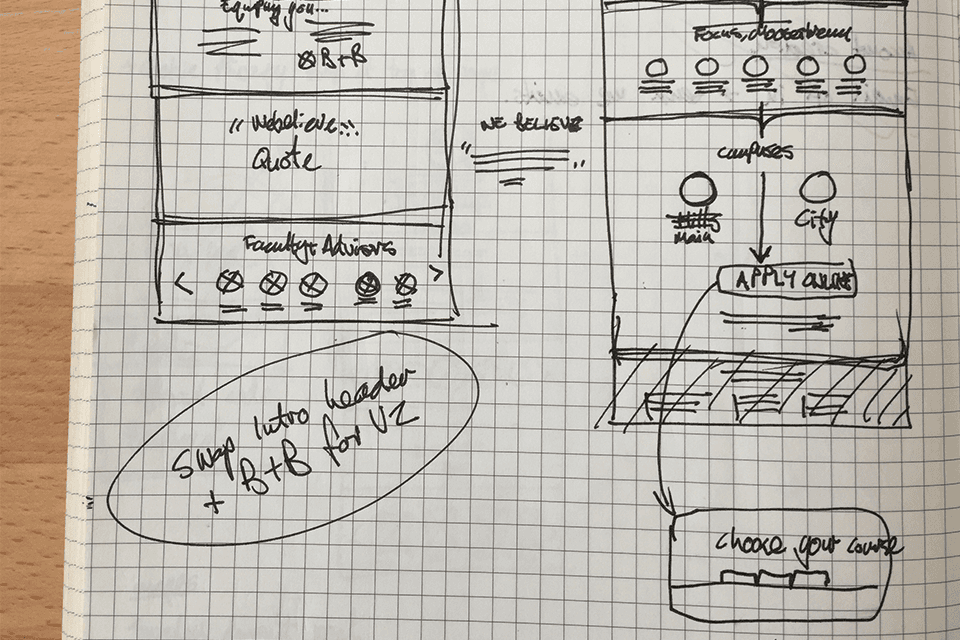 Equiping you...
B+B
" We believe...
Quote
Faculty + Advisors
Swap Intro header
+ B+B for V2
WE BELIEVE
Focus,
campuses
Main
City
APPLY ONLINE
Choose your course